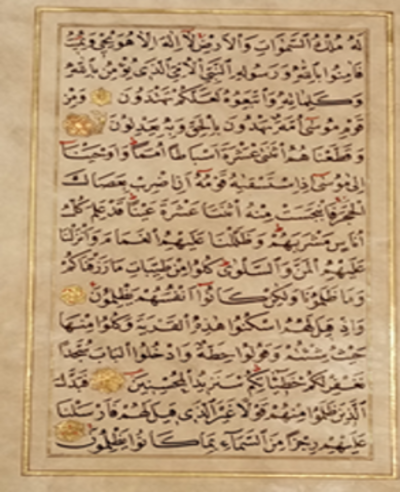 لَهُ مُلْكُ السَّمٰوَاتِ وَالْاَرْضِ لَا اِلٰهَ اِلَّا هُوَ يُحْيِي وَيُمِيتُ
فَاٰمِنُوا بِاللّٰهِ وَرَسُولِهِ النَّبِيِّ الْاُمِّيِّ الَّذِي يُؤْمِنُ بِاللّٰهِ
وَكَلِمَاتِهِ وَاتَّبِعُوهُ لَعَلَّكُمْ تَهْتَدُونَ وَمِنْ
قَوْمِ مُوسٰى اُمَّةٌ يَهْدُونَ بِالْحَقِّ وَبِهِ يَعْدِلُونَ
وَقَطَّعْنَاهُمُ اثْنَتَيْ عَشْرَةَ اَسْبَاطًا اُمَمًا وَاَوْحَيْنَا
اِلٰى مُوسٰى اِذِ اسْتَسْقٰيهُ قَوْمُهُ اَنِ اضْرِبْ بِعَصَاكَ
الْحَجَرَ فَانْبَجَسَتْ مِنْهُ اثْنَتَا عَشْرَةَ عَيْنًا قَدْ عَلِمَ كُلُّ
اُنَاسٍ مَشْرَبَهُمْ وَظَلَّلْنَا عَلَيْهِمُ الْغَمَامَ وَاَنْزَلْنَا
عَلَيْهِمُ الْمَنَّ وَالسَّلْوٰى كُلُوا مِنْ طَيِّبَاتِ مَا رَزَقْنَاكُمْ
وَمَا ظَلَمُونَا وَلٰكِنْ كَانُوا اَنْفُسَهُمْ يَظْلِمُونَ
وَاِذْ قِيلَ لَهُمُ اسْكُنُوا هٰذِهِ الْقَرْيَةَ وَكُلُوا مِنْهَا
حَيْثُ شِئْتُمْ وَقُولُوا حِطَّةٌ وَادْخُلُوا الْبَابَ سُجَّدًا
نَغْفِرْ لَكُمْ خَطِٓيـَٔاتِكُمْ سَنَزِيدُ الْمُحْسِنِينَ فَبَدَّلَ
الَّذِينَ ظَلَمُوا مِنْهُمْ قَوْلًا غَيْرَ الَّذِي قِيلَ لَهُمْ فَاَرْسَلْنَا
عَلَيْهِمْ رِجْزًا مِنَ السَّمَاءِ بِمَا كَانُوا يَظْلِمُونَ